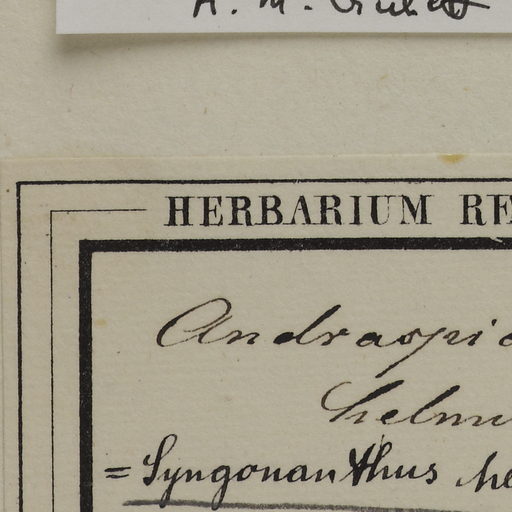 A. M. Giulietti
HERBARIUM RE
Andraspi
helm
= Syngonanthus he